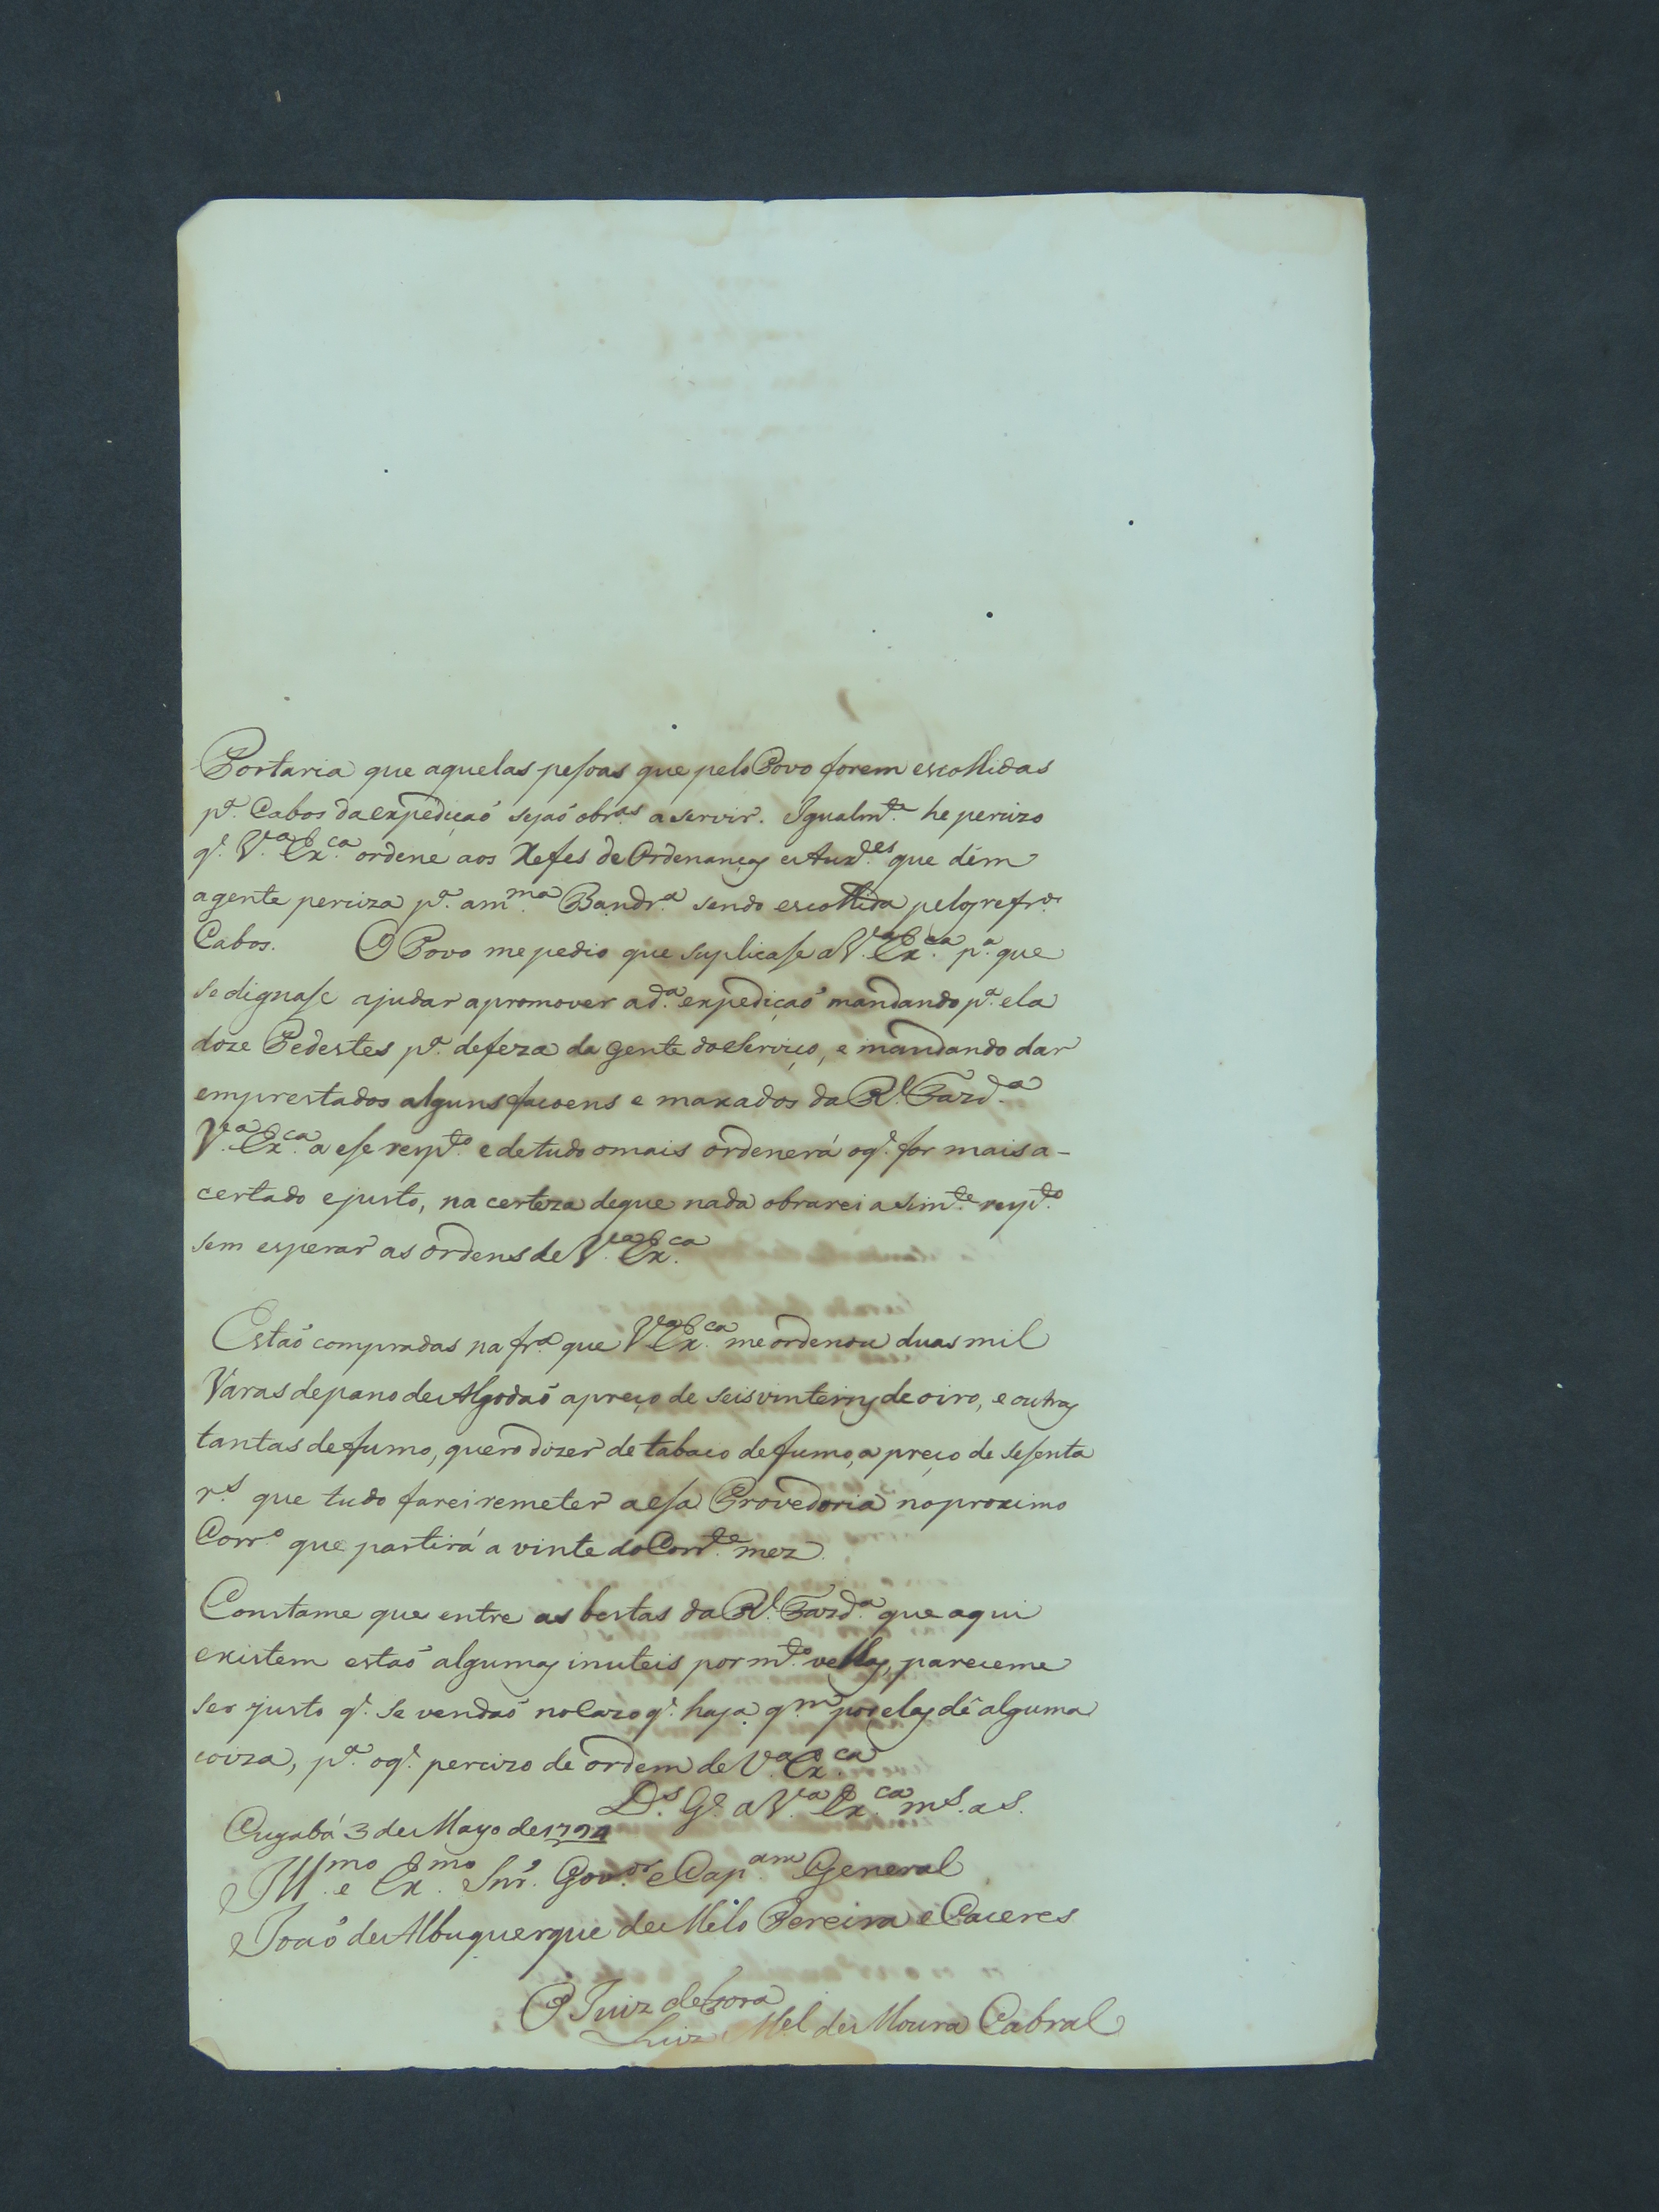 Portaria que aquelas pesoas que pelo Povo forem escolhidas
pª. Cabos da expediçaõ sejaõ obrᵃˢ a servir. Igualmᵗᵉ. he percizo
q̃. Vª. Exᶜᵃ. ordene aos Xefes de Ordenanças e Auxᵉˢ. que dém
a gente perciza pª. a mᵐᵃ. Bandrª. sendo escolhida pelos refrᵒˢ.
Cabos. O Povo me pedio que suplicase a Vª. Exᶜᵃ. pª. que
se dignase ajudar a promover a dª. expediçaõ mandando pª. ela
doze Pedestes pª. defeza da gente do serviço, e mandando dar
emprestados alguns facoens e maxados da Rˡ. Fazdª.
Vª. Exᶜᵃ. a ese respᵗᵒ. e de tudo o mais ordenerá o q̃. for mais a-
certado e justo, na certeza de que nada obrarei a simᵉ. respᵗᵒ.
sem esperar as ordens de Vª. Exᶜᵃ.
Estaõ compradas na frª. que Vª. Exᶜᵃ. me ordenou duas mil
Varas de pano de Algodaõ a preço de seis vinteins de oiro, e outras
tantas de fumo, quero dizer de tabaco de fumo, a preço de sesenta
rˢ. que tudo farei remeter a esa Provedoria no proximo
Corrº. que partirá a vinte do Corrᵗᵉ. mez.
Constame que entre as bestas da Rˡ. Fazdª. que aqui
existem estaõ algumas inuteis por mᵗᵒ. velhas, pareceme
ser justo q̃. se vendaõ no Cazo q̃. haja qᵐ. por elas dê alguma
coiza, pª. o q̃. percizo de ordem de Vª. Exᶜᵃ.
Dˢ. Gᵉ. a Vª. Exᶜᵃ. mˢ. aˢ.
Cuyabá 3 de Mayo de 1794
Illᵐᵒ. e Exᵐᵒ. Snr̃. Govᵒʳ. e Capᵃᵐ. General
Joaõ de Albuquerque de Melo Pereira e Caceres
O Juiz de Fora
Luiz Mel de Moura Cabral